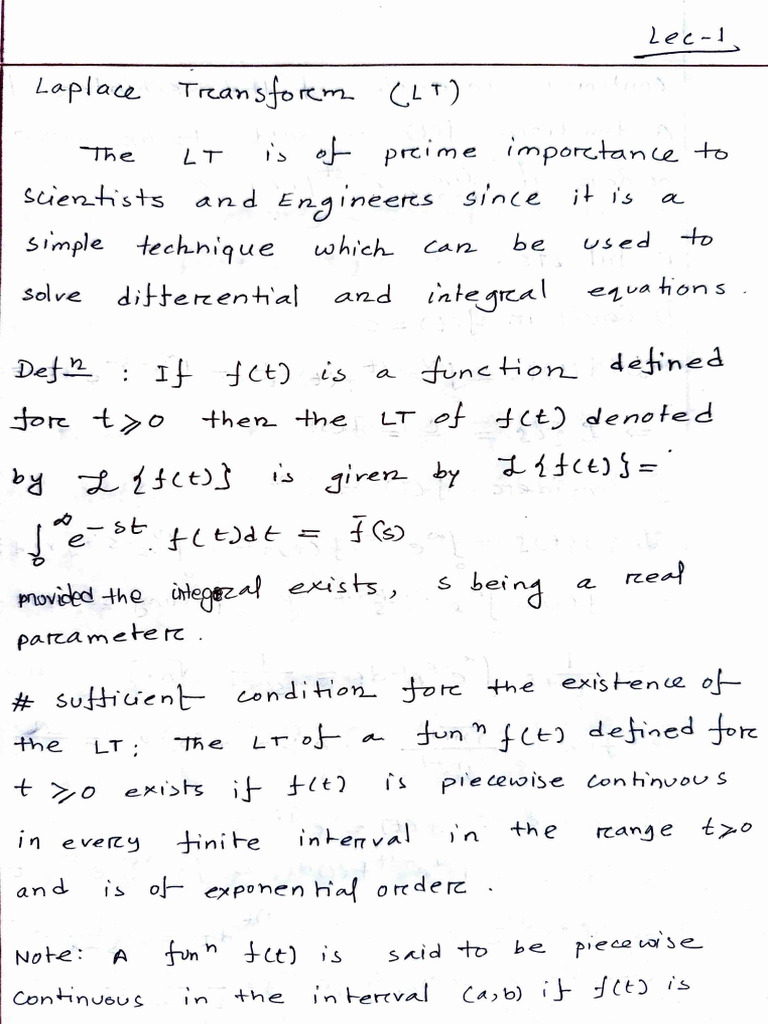 Lec-1
Laplace Transform (LT)
The LT is of prime importance to
scientists and Engineers since it is a
simple technique which can be used to
solve differential and integral equations.
Defⁿ : If f(t) is a function defined
for t⩾0 then the LT of f(t) denoted
by ℒ{f(t)} is given by ℒ{f(t)}=
∫₀^∞ e^{-st}. f(t)dt = f̄(s)
provided the integral exists, s being a real
parameter.
# sufficient condition for the existence of
the LT: The LT of a funⁿ f(t) defined for
t ⩾0 exists if f(t) is piecewise continuous
in every finite interval in the range t⩾0
and is of exponential order.
Note: A funⁿ f(t) is said to be piecewise
continuous in the interval (a,b) if f(t) is